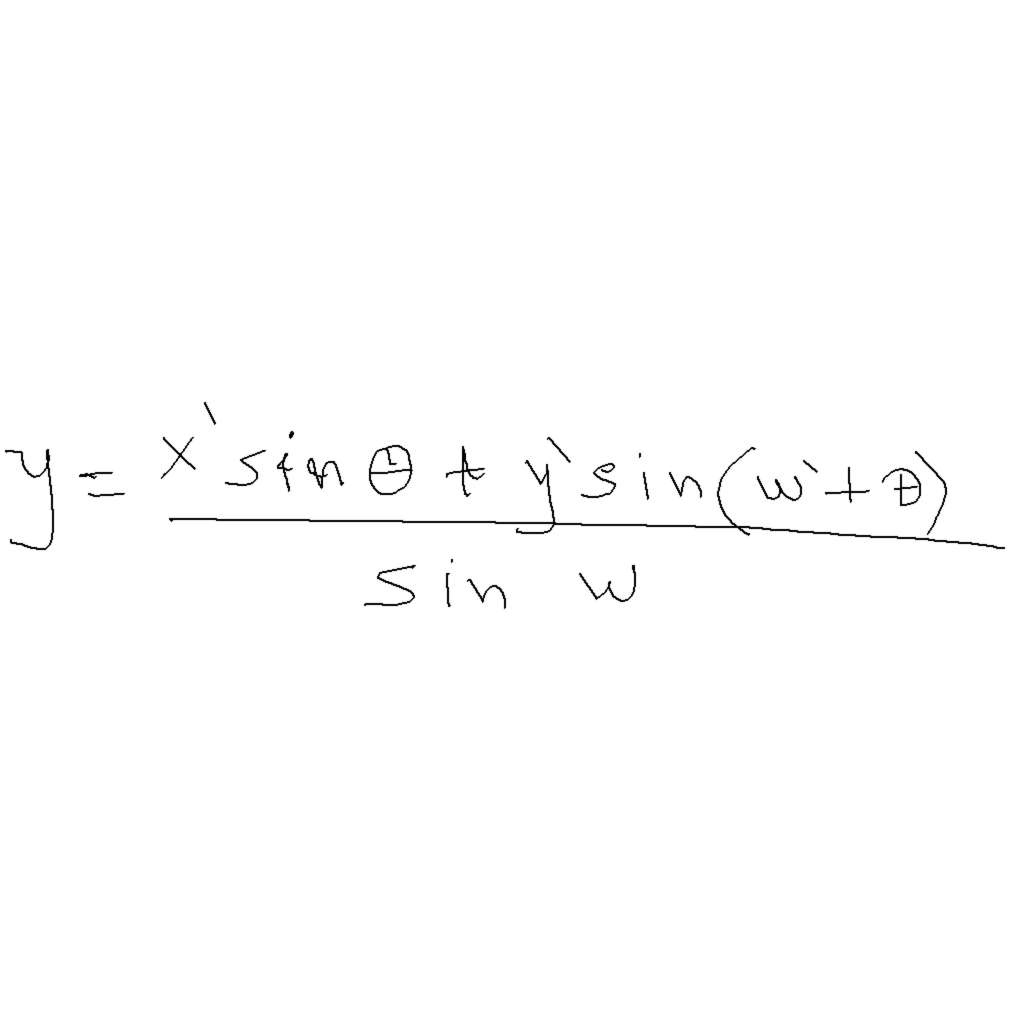 y = \frac{x' sin θ + y' sin(w' + θ)}{sin w}